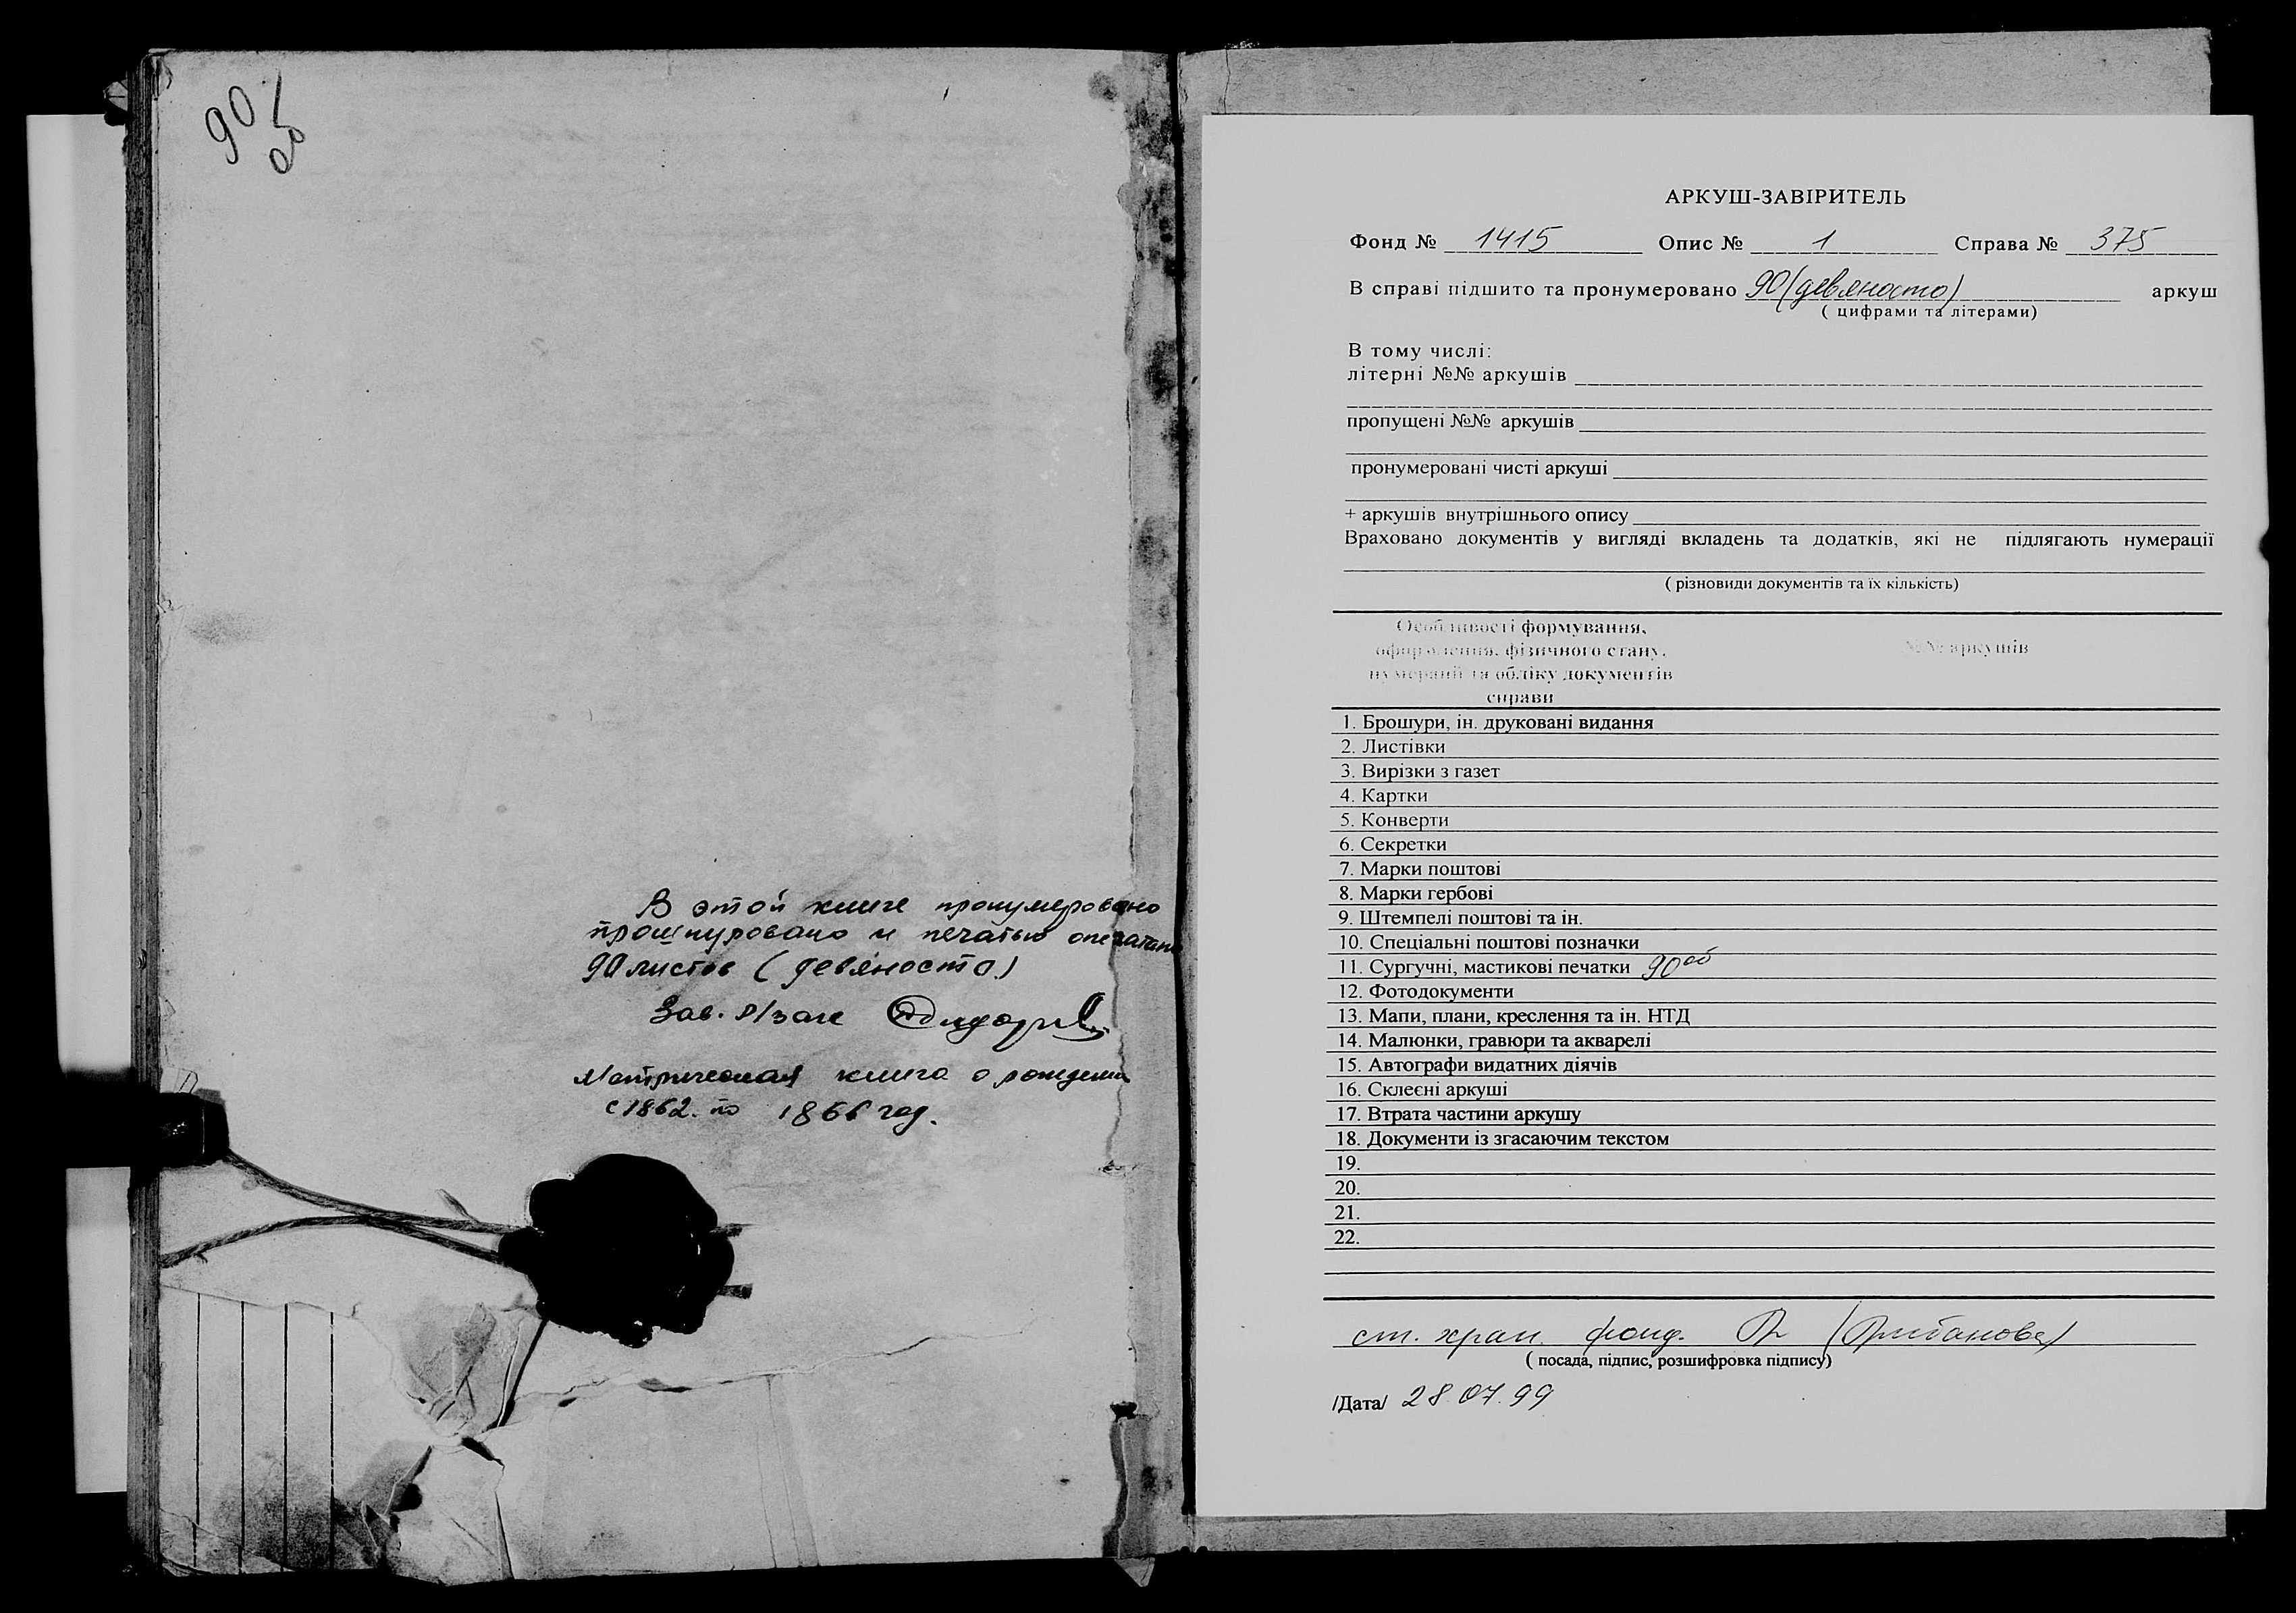 90
об
В этой книге пронумеровано
прошнуровано и печатью опечатано
90 листов (девяносто)
Зав.
Метрическая книга о рождении
с 1862 по 1866 год.
АРКУШ-ЗАВІРИТЕЛЬ
Фонд № 1415 Опис № 1 Справа № 375
В справі підшито та пронумеровано 90 (девяносто) аркуш
( цифрами та літерами)
В тому числі:
літерні №№ аркушів
пропущені №№ аркушів
пронумеровані чисті аркуші
+ аркушів внутрішнього опису
Враховано документів у вигляді вкладень та додатків, які не підлягають нумерації
( різновиди документів та їх кількість)
Особливості формування, 
оформлення, фізичного стану, №№ аркушів
нумерації та обліку документів
справи
1. Брошури, ін. друковані видання
2. Листівки
3. Вирізки з газет
4. Картки
5. Конверти
6. Секретки
7. Марки поштові
8. Марки гербові
9. Штемпелі поштові та ін.
10. Спеціальні поштові позначки
11. Сургучні, мастикові печатки 90 об
12. Фотодокументи
13. Мапи, плани, креслення та ін. НТД
14. Малюнки, гравюри та акварелі
15. Автографи видатних діячів
16. Склеєні аркуші
17. Втрата частини аркушу
18. Документи із згасаючим текстом
19.
20.
21.
22.
ст. хран. фонд.
( посада, підпис, розшифровка підпису)
/Дата/ 28.07.99